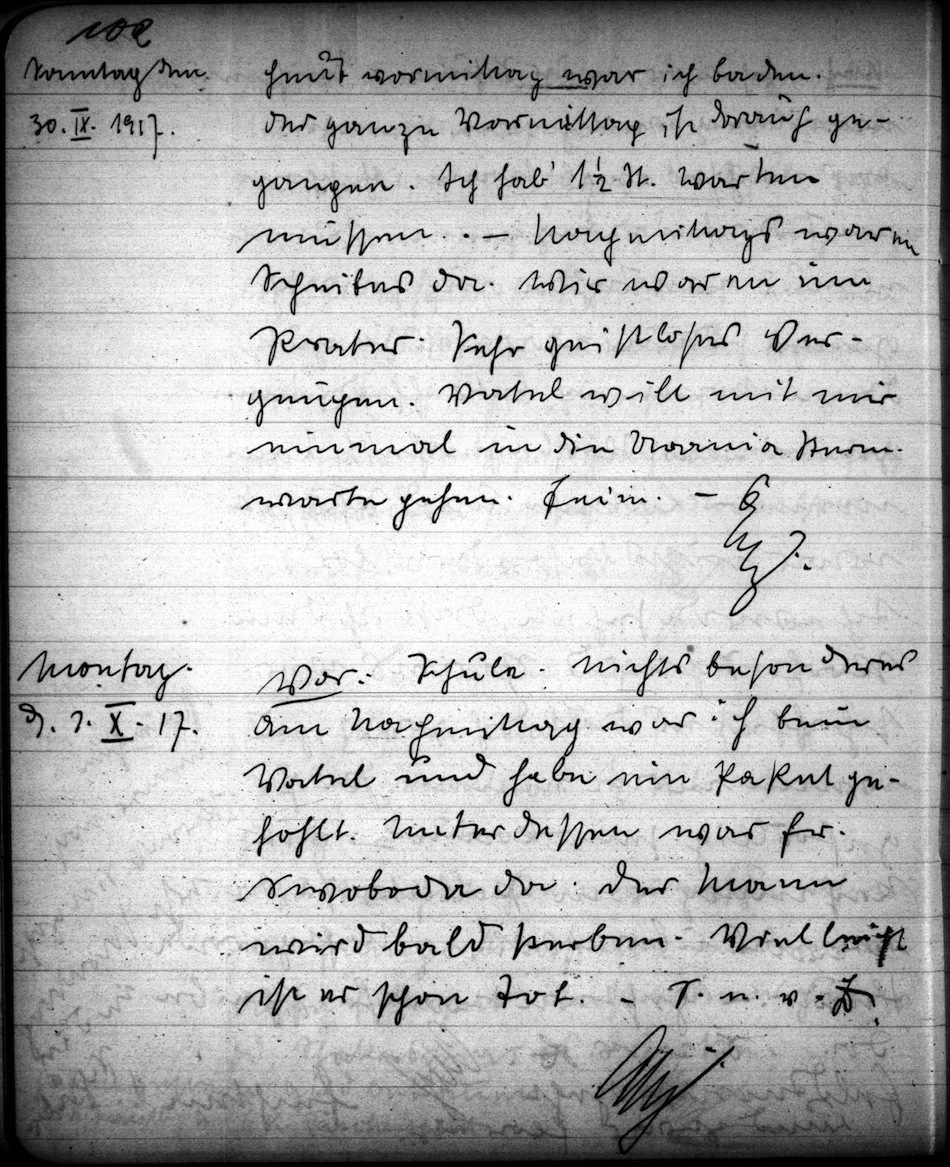 102
Sonntag den
30. IX. 1917.
Heut vormittag war ich baden.
Der ganze Vormittag ist darauf ge-
gangen. Ich hab 1½ St. warten
müssen. . – Nachmittags waren
Scheibes da. Wir waren im
Prater. Sehr geistloses Ver-
gnügen. Vatel will mit mir
einmal in die Urania Stern-
warte gehen. Fein. –
Montag.
d. 1. X. 17.
Vor.: Schule. Nichts besonderes
Am Nachmittag war ich beim
Vatel und habe ein Paket ge-
hohlt. Unterdessen war Fr.
Swoboda da. Der Mann
wird bald sterben. Vielleicht
ist er schon tot. – T. n. v.